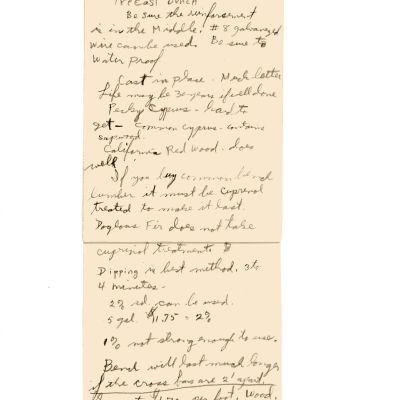 Be sure the reinforcement
is in the Middle. #8 galvanized
wire can be used. Be sure to
Water Proof
Cast in place - Much better
Life may be 30 years if well done
Pecky Cyprus - hard to
get - Common cyprus - contains
sapwood.
California Red Wood. does
well
If you buy common bench
lumber it must be Cuprinol
treated to make it last.
Doglous Fir does not take
cuprinol treatments
Dipping is best method. 3 to
4 minutes -
2% sol. can be used.
5 gal. $11.75 = 2%
1% not strong enough to use.
Bench will last much longer
if the cross bars are 2' apart.
per foot, Wood,